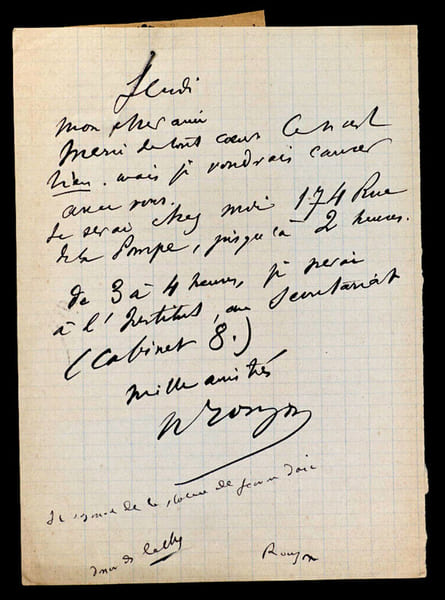 Jeudi
mon cher ami
merci de tout cœur Ce n'est
rien. mais je voudrais causer
avec vous.
Je serai chez moi 174 Rue
de la Pompe, jusqu'à 2 heures.
de 3 à 4 heures, je serai
à l'Institut, au Secrétariat
(Cabinet 8.)
mille amitiés
H Roujon
de la statue de Jeanne d'Arc
Roujon